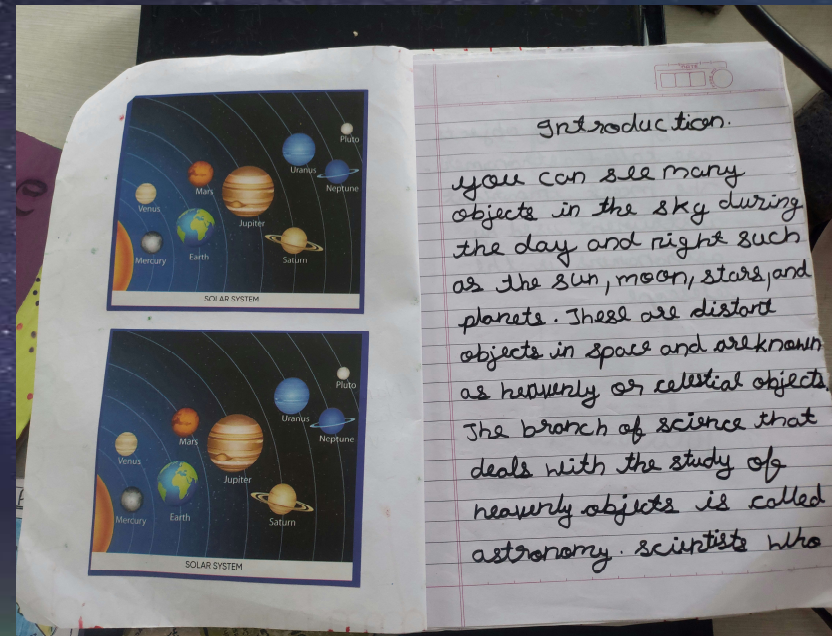 Pluto
Uranus
Neptune
Mars
Venus
Jupiter
Mercury
Earth
Saturn
SOLAR SYSTEM
Pluto
Uranus
Neptune
Mars
Venus
Jupiter
Mercury
Earth
Saturn
SOLAR SYSTEM
Introduction.
you can see many
objects in the sky during
the day and night such
as the sun, moon, stars, and
planets. These are distant
objects in space and are known
as heavenly or celestial objects.
The branch of science that
deals with the study of
heavenly objects is called
astronomy. scientists who